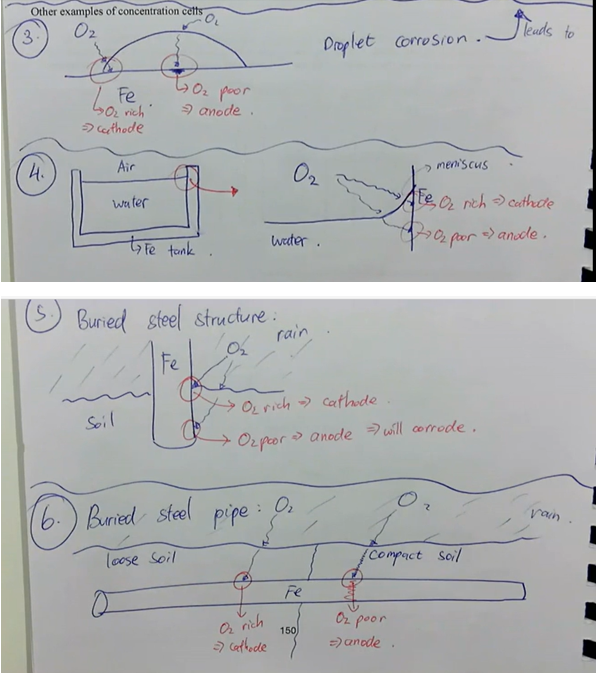 Other examples of concentration cells
3.
O₂
O₂
Droplet corrosion.
leads to
Fe.
O₂ rich
⇒ cathode
O₂ poor
⇒ anode.
4.
Air
water
Fe tank.
O₂
meniscus
Fe
O₂ rich ⇒ cathode
O₂ poor ⇒ anode.
water.
5. Buried steel structure:
rain.
Fe
O₂
Soil
O₂ rich ⇒ cathode
O₂ poor ⇒ anode ⇒ will corrode.
6. Buried steel pipe:
O₂
O₂
rain.
loose soil
Compact soil
Fe
O₂ rich
⇒ cathode
150
O₂ poor
⇒ anode.